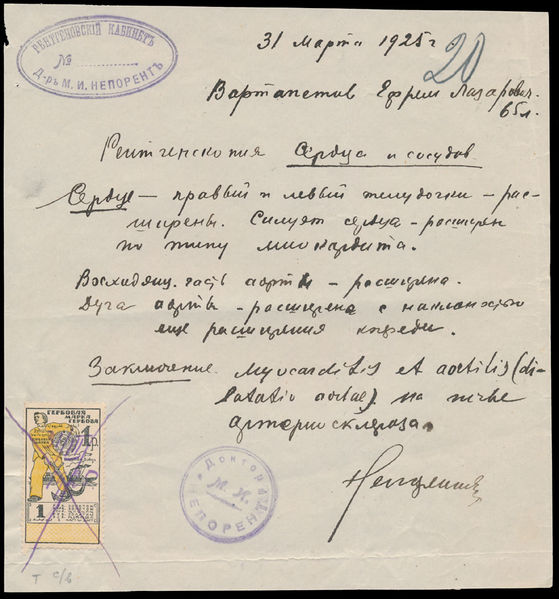 РЕНТГЕНОВСКІЙ КАБИНЕТЪ
№
Д-ръ М. И. НЕПОРЕНТЪ
31 Марта 1925 г
20
Вартапетов Ефрем Лазарович.
65 л.
Рентгенскопия Сердца и сосудов
Сердце – правый и левый желудочки – рас-
ширены. Силует сердца – расширен
по типу миокардита.
Восходящ. часть аорты – расширена.
Дуга аорты – расширена с наклоностью
еще расширения кпреди.
Заключение. Myocarditis et aortitis (di-
latatio aortae) на почве
артериосклероза.
ГЕРБОВАЯ
МАРКА
ГЕРБОВА
1 р
1
Доктор
М. И.
НЕПОРЕНТ
Т с/в